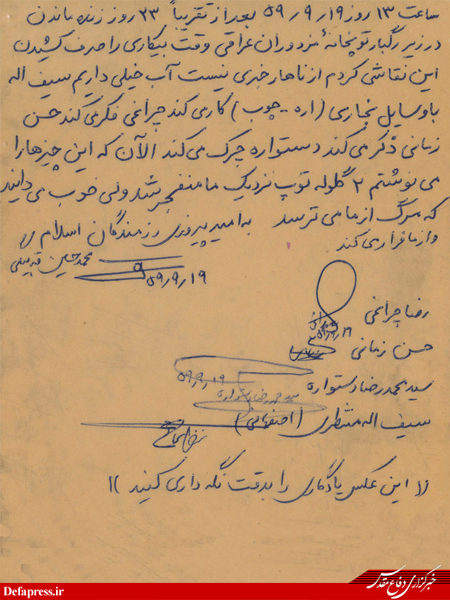 ساعت ۱۳ روز ۵۹/۹/۱۹ بعد از تقریباً ۲۳ روز زنده ماندن
در زیر رگبار توپخانه مزدوران عراقی وقت بیکاری را صرف کشیدن
این نقاشی کردم از ناهار خبری نیست آب خیلی داریم سیف اله
با وسایل نجاری (اره - چوب) کار می کند چراغی فکر می کند حسن
زمانی ذکر می کند دستواره چرک می کند الآن که این چیزها را
می نوشتم ۲ گلوله توپ نزدیک ما منفجر شد ولی خوب می دانید
که مرگ از ما می ترسد به امید پیروزی رزمندگان اسلام
و از ما فرار می کند
محمد حسین
۵۹/۹/۱۹
رضا چراغی
۵۹/۹/۱۹
حسن زمانی
۵۹/۹/۱۹
سید محمد رضا دستواره
سید محمد رضا دستواره
سیف اله منتظری (اصفهانی)
(( این عکس یادگاری را بدقت نگه داری کنید ))
Defapress.ir
خبرگزاری دفاع مقدس